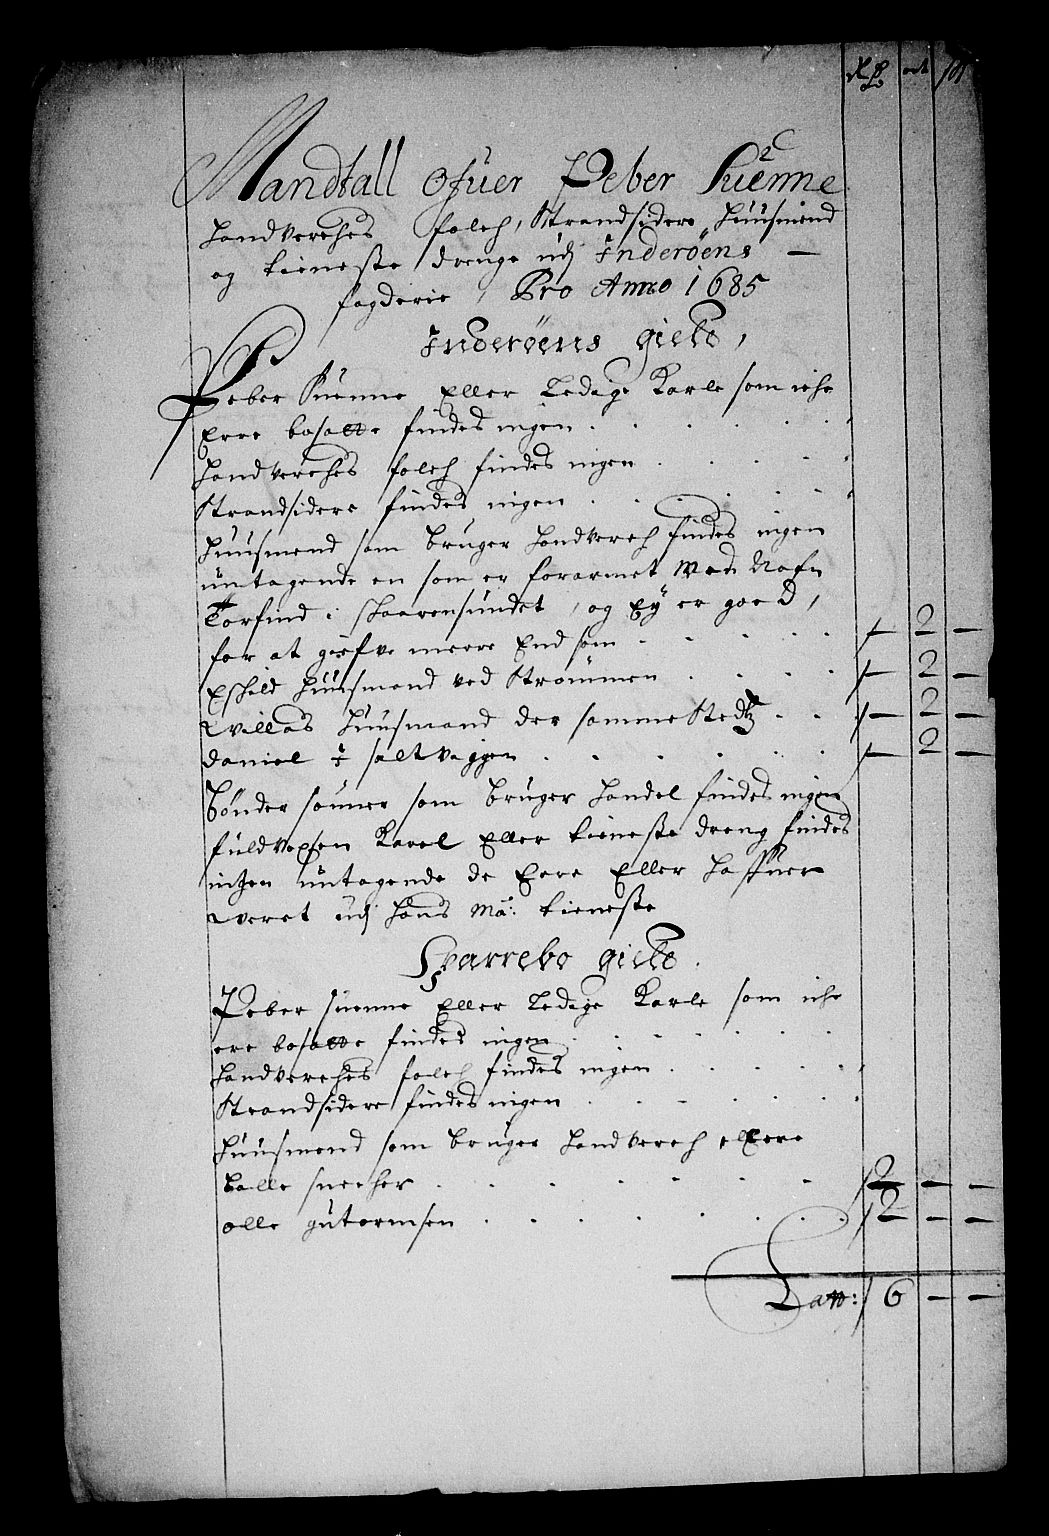 Rdr ort sk
Mandtall Ofuer Peber Suenne
Handverches folch, Strandsidere Huusmend
og tieneste drenge udj Inderöens —
fogderie, Pro Anno 1685
Inderöens gield,
Peber Suenne Eller Ledige Karle som iche
Erre bosatte findes ingen
Handverches folch findes ingen
Strandsidere findes ingen
Huusmend som bruger Handverch findes ingen
untagende en som er forarmet Med Nafn
Torfind i Skaarensundet, og Ey er goed,
for at giefve meere End som — 2 —
Eskild Huusmand ved Strømmen — 2 —
Willas Huusmand der samme Stedtz — 2 —
Daniel i saltveggen — 2 —
Bønder sønner som bruger Handel findes ingen
fuldvoxsen Karel Eller tieneste dreng findes
ingen untagende de Erre Eller haffuer
Weret udj Hans Ma: tieneste
Sparrebo gield.
Peber Suenne Eller Ledige Karle som iche
ere bosatte findes ingen
Handverches folch findes ingen
Strandsidere findes ingen
Huusmend som bruger Handverch ellere
Balle snecher 2 — —
Olle gutormsen 2 — —
Latt: 6 — —